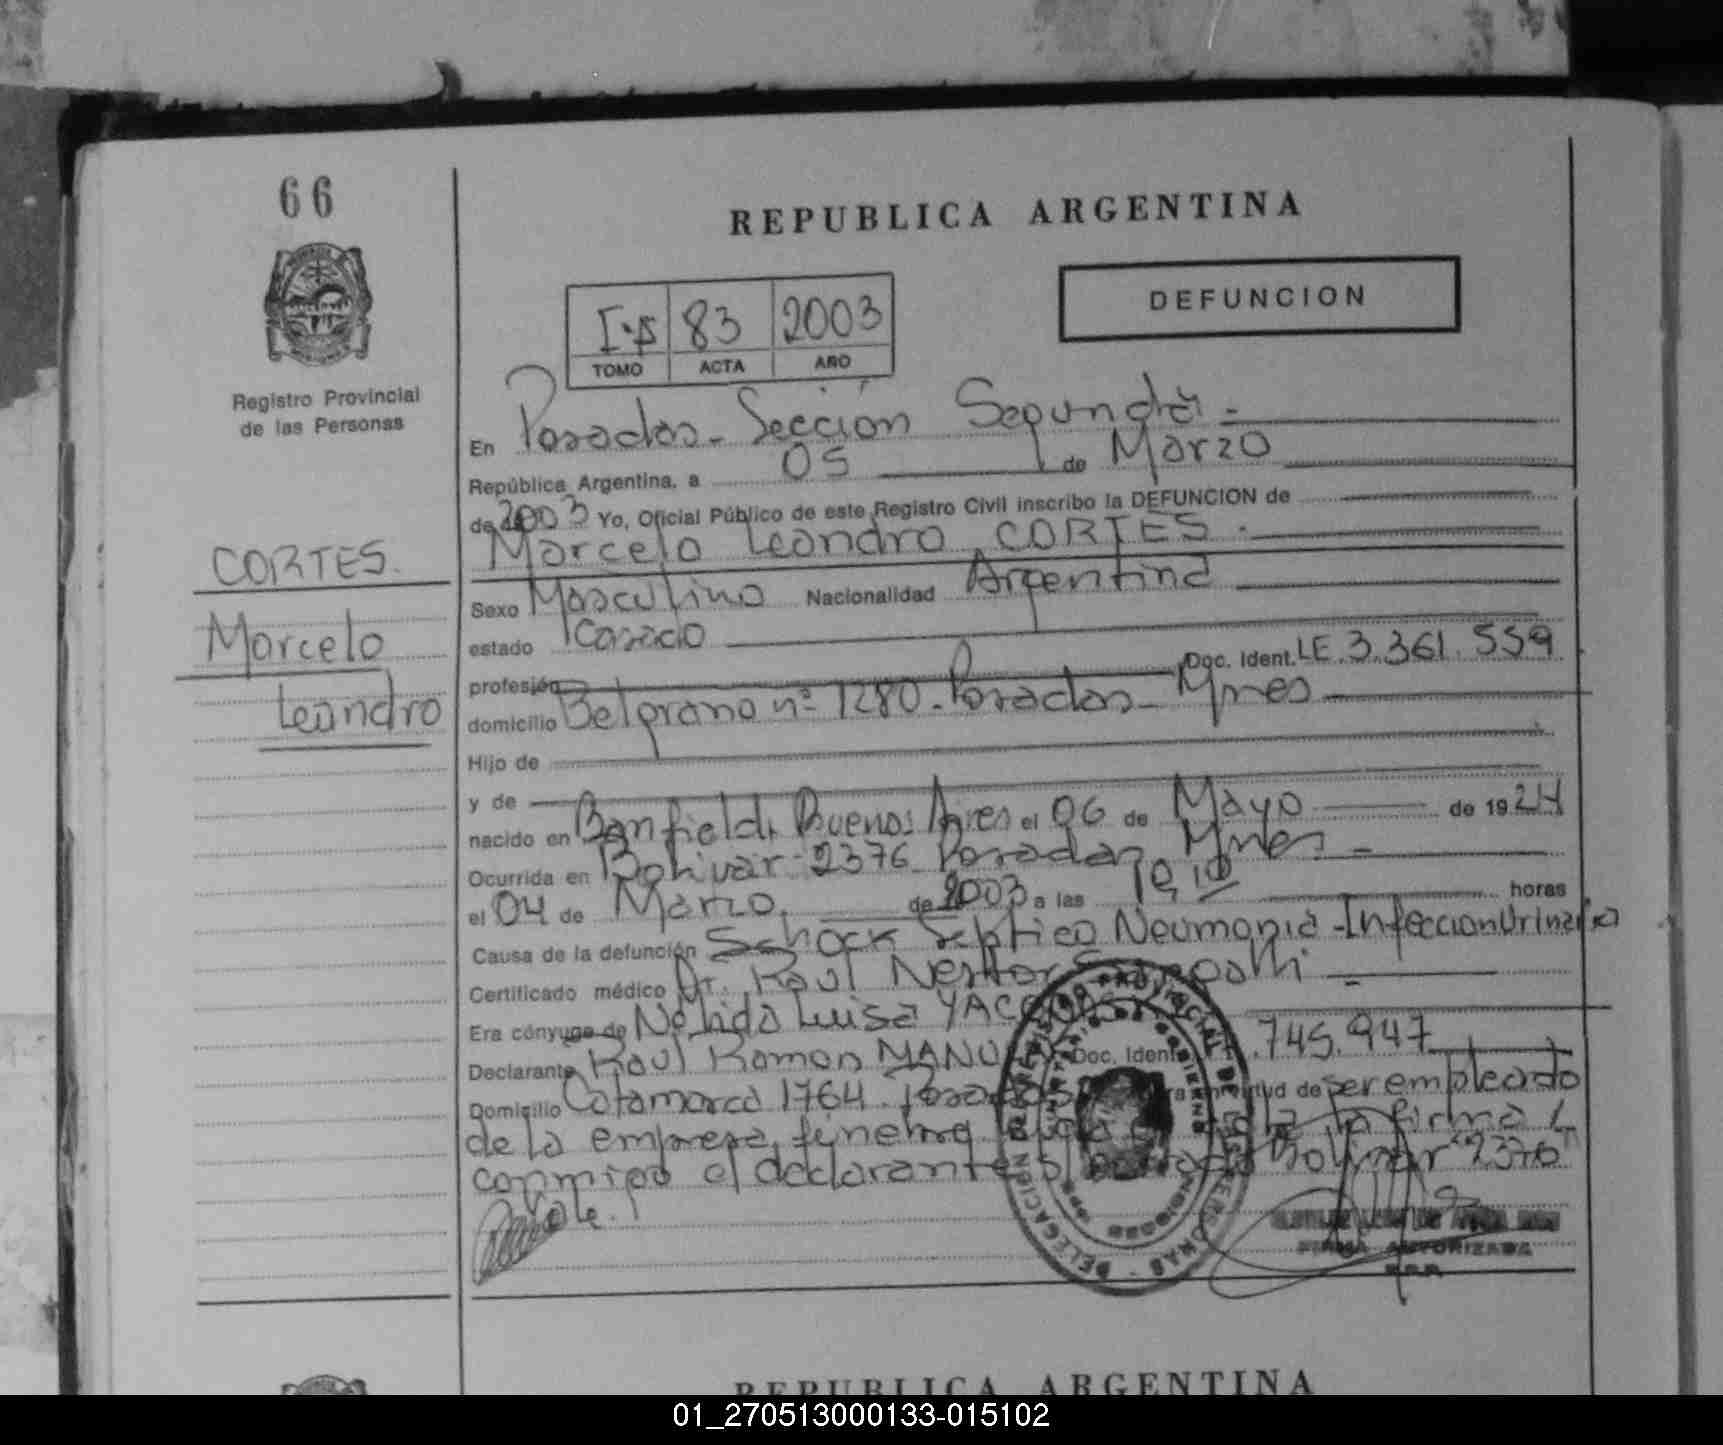 66
REPUBLICA ARGENTINA
DEFUNCION
83 2003
TOMO ACTA AÑO
Registro Provincial
de las Personas
En Posadas - Sección Segunda -
República Argentina, a 05 de Marzo
de 2003 Yo, Oficial Público de este Registro Civil inscribo la DEFUNCION de
Marcelo Leandro CORTES.
CORTES.
Marcelo
Leandro
Sexo Masculino Nacionalidad Argentina
estado Casado
profesión Doc. Ident. LE 3.361.559
domicilio Belgrano nº 1280 - Posadas - Mnes
Hijo de
y de
nacido en Banfield, Buenos Aires el 06 de Mayo de 1924
Ocurrida en Bolivar 2376 Posadas, Mnes -
el 04 de Marzo de 2003 a las horas
Causa de la defunción Schock Septico Neumonia - Infeccion Urinaria
Certificado médico Dr. Raul Nestor
Era cónyuge de Nelida Luisa
Declarante Raul Ramon Doc. Ident. 745.947
Domicilio Catamarca 1764 - Posadas de ser empleado
de la empresa funebre la firma
conmigo el declarante Bolivar 2376
FIRMA AUTORIZADA
R.P.P.
REPUBLICA ARGENTINA
01_270513000133-015102